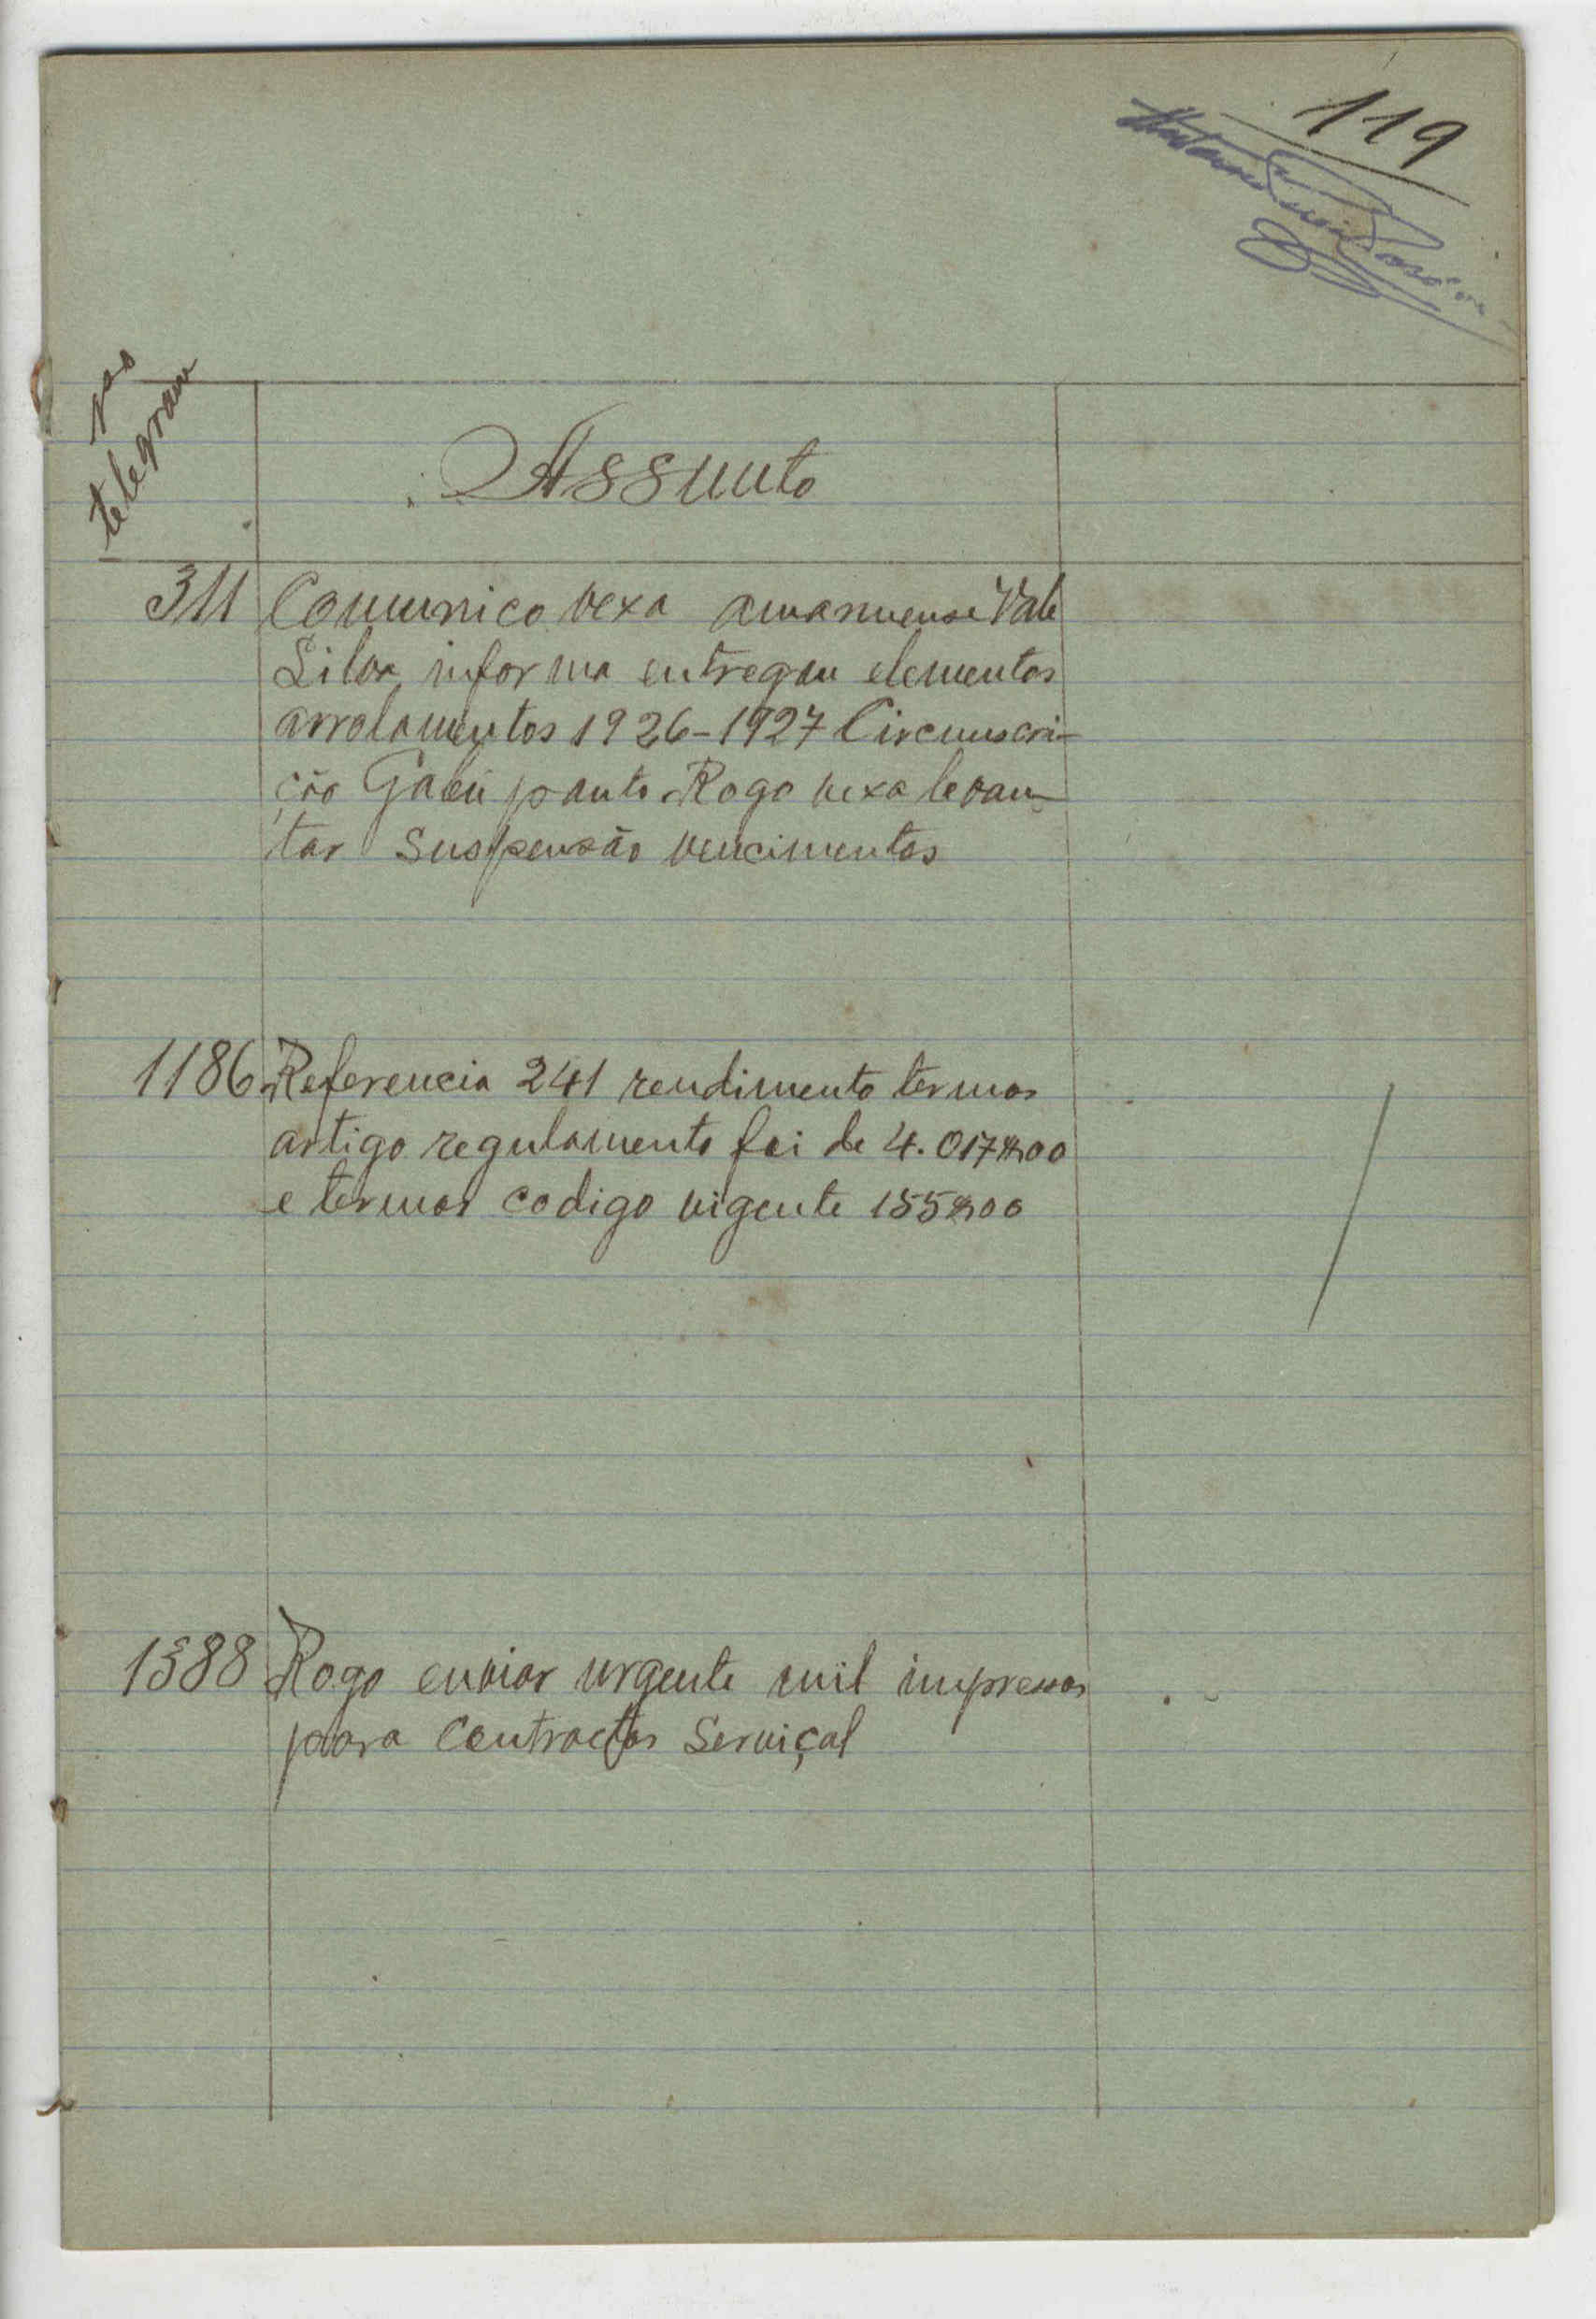 119
telegram
Assunto
311 Comunico vexa amanuense Vale
Silva informa entregou elementos
arrolamentos 1926-1927 Circunscri-
ção Gabú ponto Rogo vexa levan-
tar suspensão vencimentos
1186 Referencia 241 rendimento termos
artigo regulamento foi de 4.017$00
e termos codigo vigente 155$00
1388 Rogo enviar urgente mil impressos
para contractos serviçal